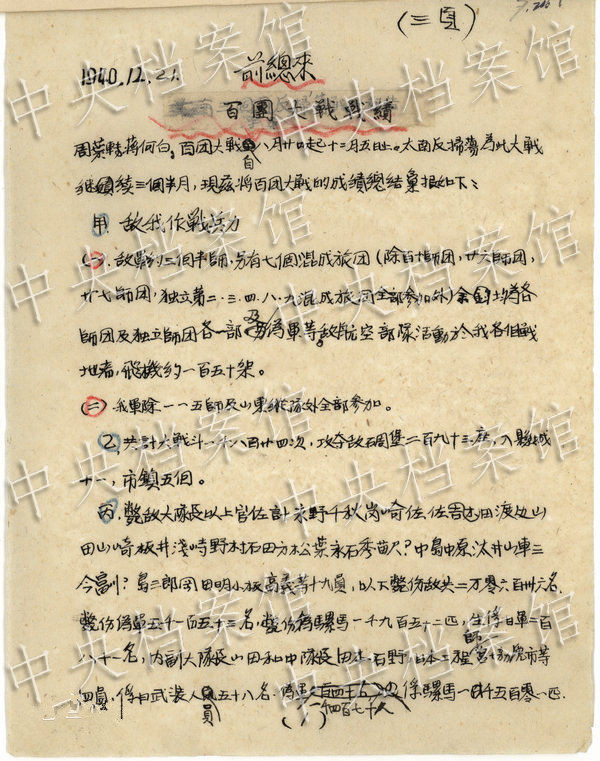 (三頁)
1940.12.21. 前總來
百團大戰戰績
周葉轉蔣何白。百团大戰自八月廿起十二月五日止。太南反掃蕩為此大戰
继續三個半月，現兹將百团大戰的成績總结彙报如下：
甲 敌我作戰兵力
(一)敌軍約三個半師，另有七個混成旅团(除百十師团，廿六師团，
廿七師团，独立第二·三·四·八·九混成旅团全部参加外)余均為各
師团及独立師团各一部及偽軍等。敌航空部隊活動於我各個戰
地者，飛機約一百五十架。
(二)我軍除一一五師及山東縱隊外全部参加。
乙，共計大戰斗一千八百廿四次，攻夺敌碉堡二百九十三座，入縣城
十一，市鎮五個。
丙，斃敌大隊長以上官佐計永野千秋岗崎佐、佐吉田渡边山
田山崎板井淺崎野村石田方松葉永石秀苗尺？中島中原汰井山連三
今富川？島三郎岡田明小板高義等十九員，以下斃伤敌共二万零六百卅六名，
斃伤偽軍五千一百五十三名，斃伤骡馬一千九百五十二匹，生俘日軍二百
八十一名，内副大隊長山田和中隊長田 石野 等
四員，俘日武装人員五十八名 一千四百七十人 俘骡馬一千五百零一匹.
(1)
中央档案馆
中央档案馆
中央档案馆
中央档案馆